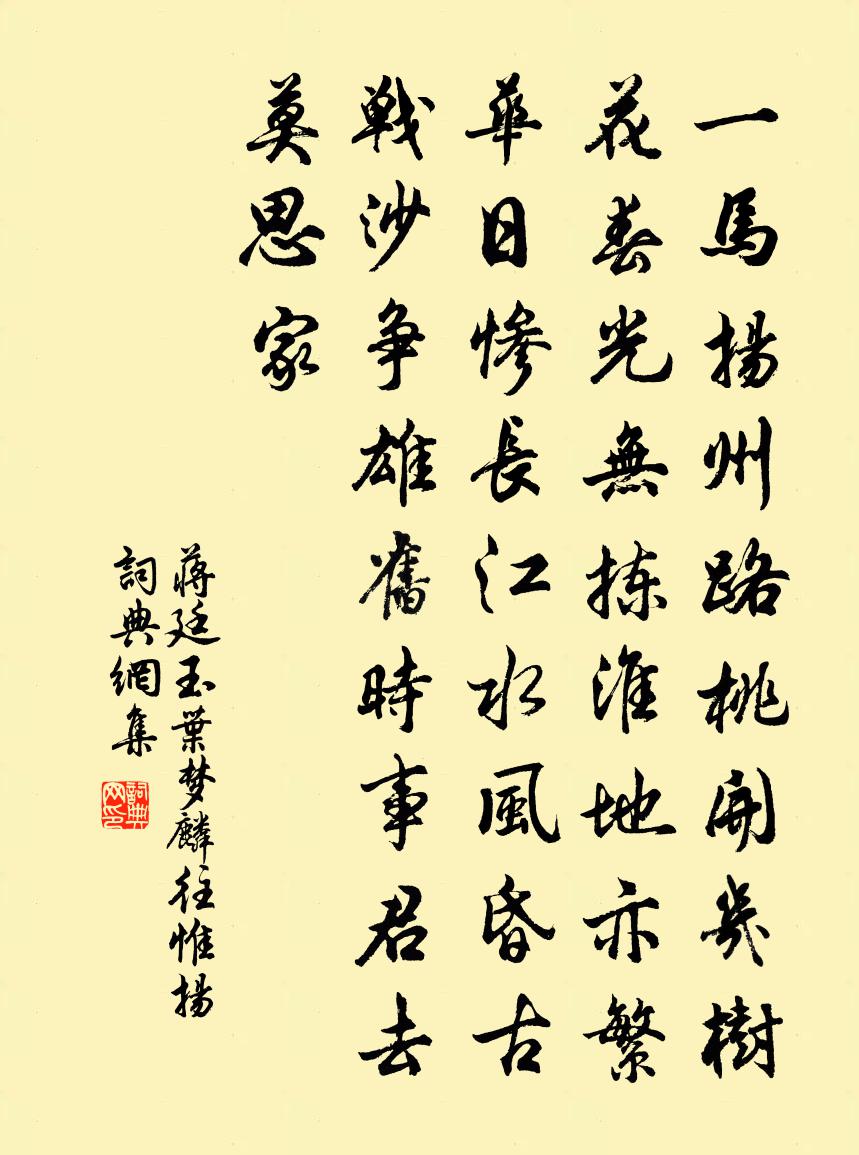 一馬揚州路桃開幾樹
花春光無拣淮地亦繁
華日慘長江水風昏古
戰沙争雄舊時事君去
莫思家
蔣廷玉葉梦麟往惟揚
詞典網集
詞典网印